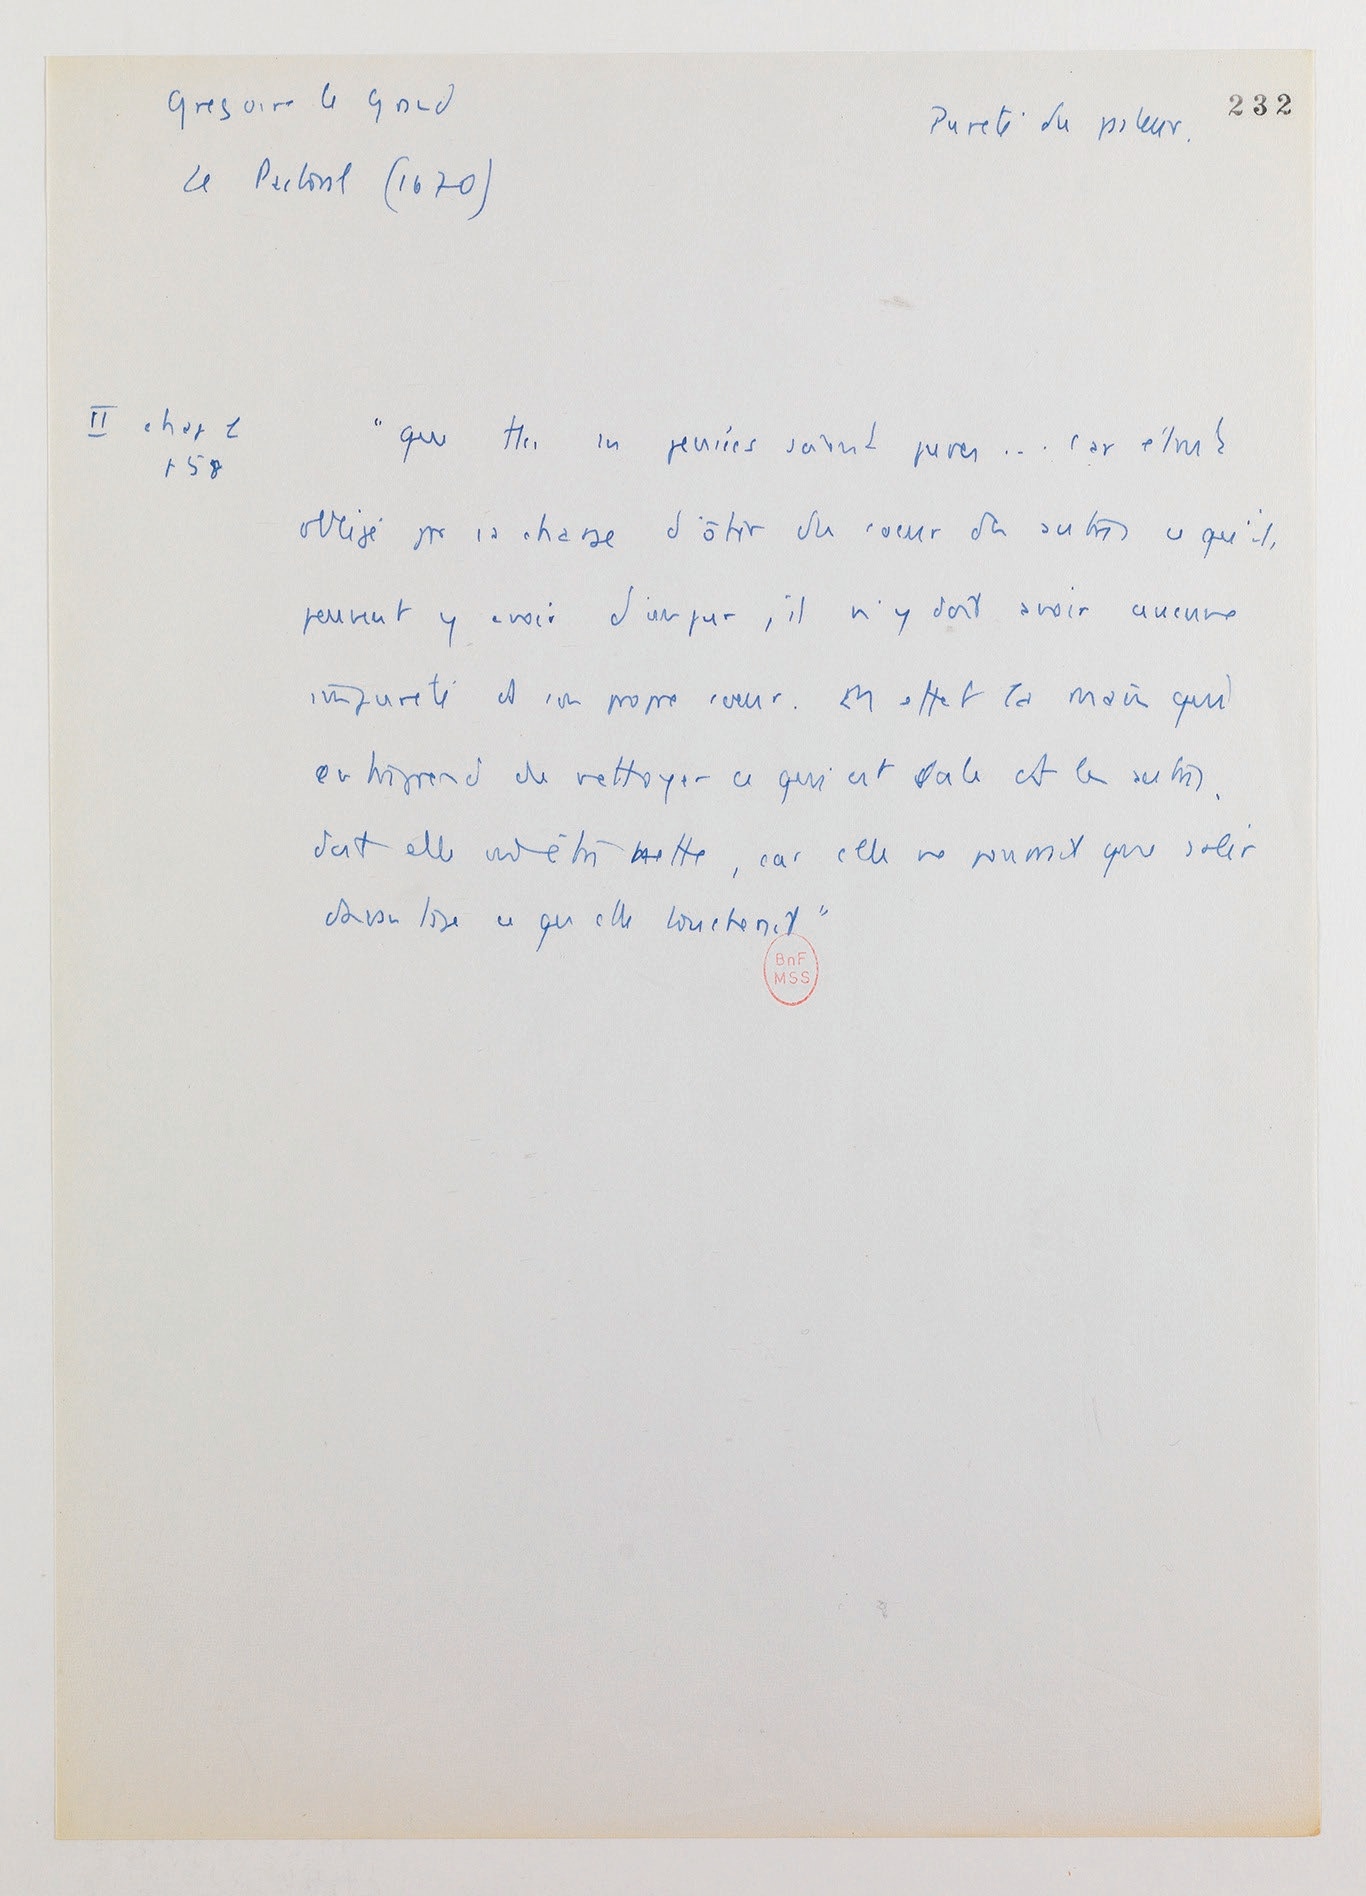 Gregoire le Grand
Pureté du pasteur.
232
Le Pastoral (1670)
II chap 2
p 58
"que ttes ses pensées soient pures ... car étant
obligé par sa charge d'ôter du coeur des autres ce qu'ils
peuvent y avoir d'impur, il n'y doit avoir aucune
impureté ds son propre coeur. En effet la main qui
entreprend de nettoyer ce qui est sale ds les autres,
doit elle être nette, car elle ne pourrait que salir
davantage ce qu elle toucherait"
BnF
MSS